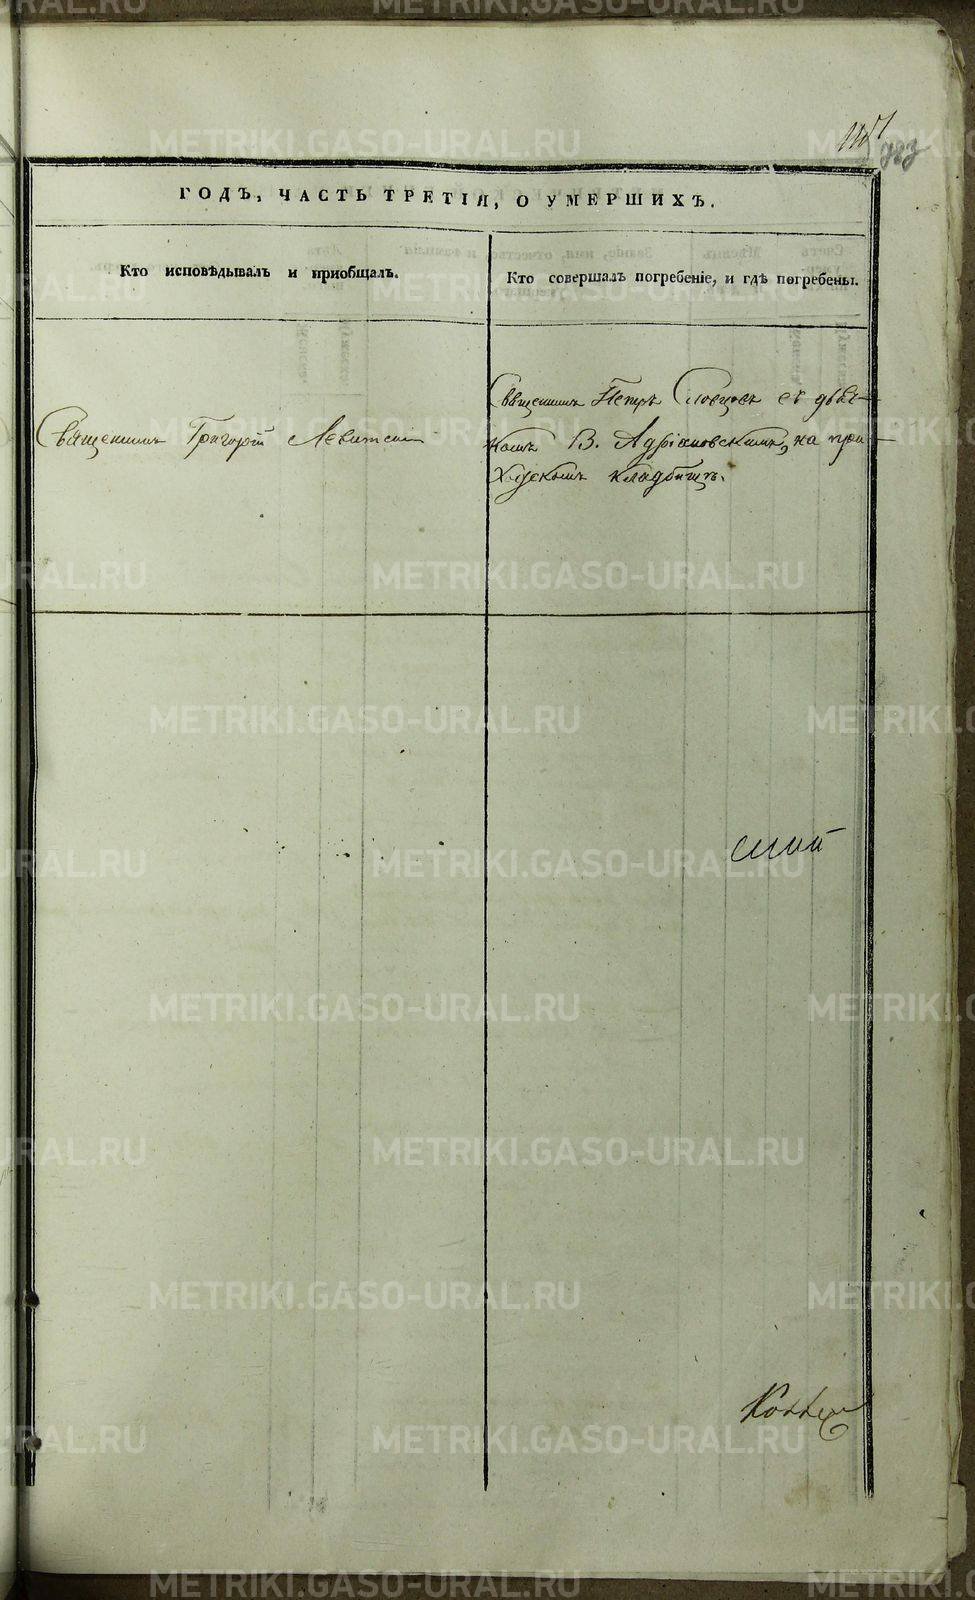 ГОДЪ, ЧАСТЬ ТРЕТІЯ, О УМЕРШИХЪ.
Кто исповѣдывалъ и пріобщалъ.
Кто совершалъ погребеніе, и гдѣ погребены.
Священникъ Григорій Левитскій
Священникъ Петръ Словцовъ съ дья-
комъ В. Адріановскимъ, на при-
ходскомъ кладбищѣ.
METRIKI.GASO-URAL.RU